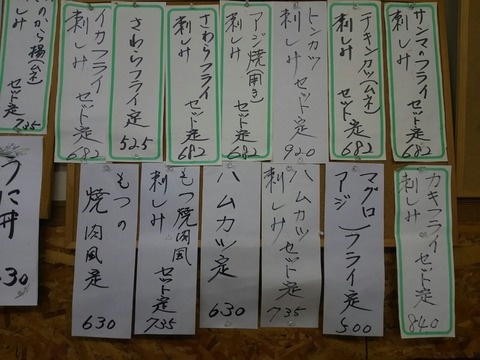 サンマのフライ
刺しみ セット定
682
チキンカツ(ムネ)
刺しみ セット定
682
トンカツ
刺しみ セット定
920
アジ焼(開き)
刺しみ セット定
682
さわらフライ
刺しみ セット定
682
さわらフライ定
525
イカフライ
刺しみ セット定
682
のから揚(ムネ)
しみ セット定
735
カキフライ
刺しみ セット定
840
マグロ
アジ フライ定
500
ハムカツ
刺しみ セット定
735
ハムカツ定
630
もつ焼肉風
刺しみ セット定
735
もつの
焼肉風定
630
うに丼
630